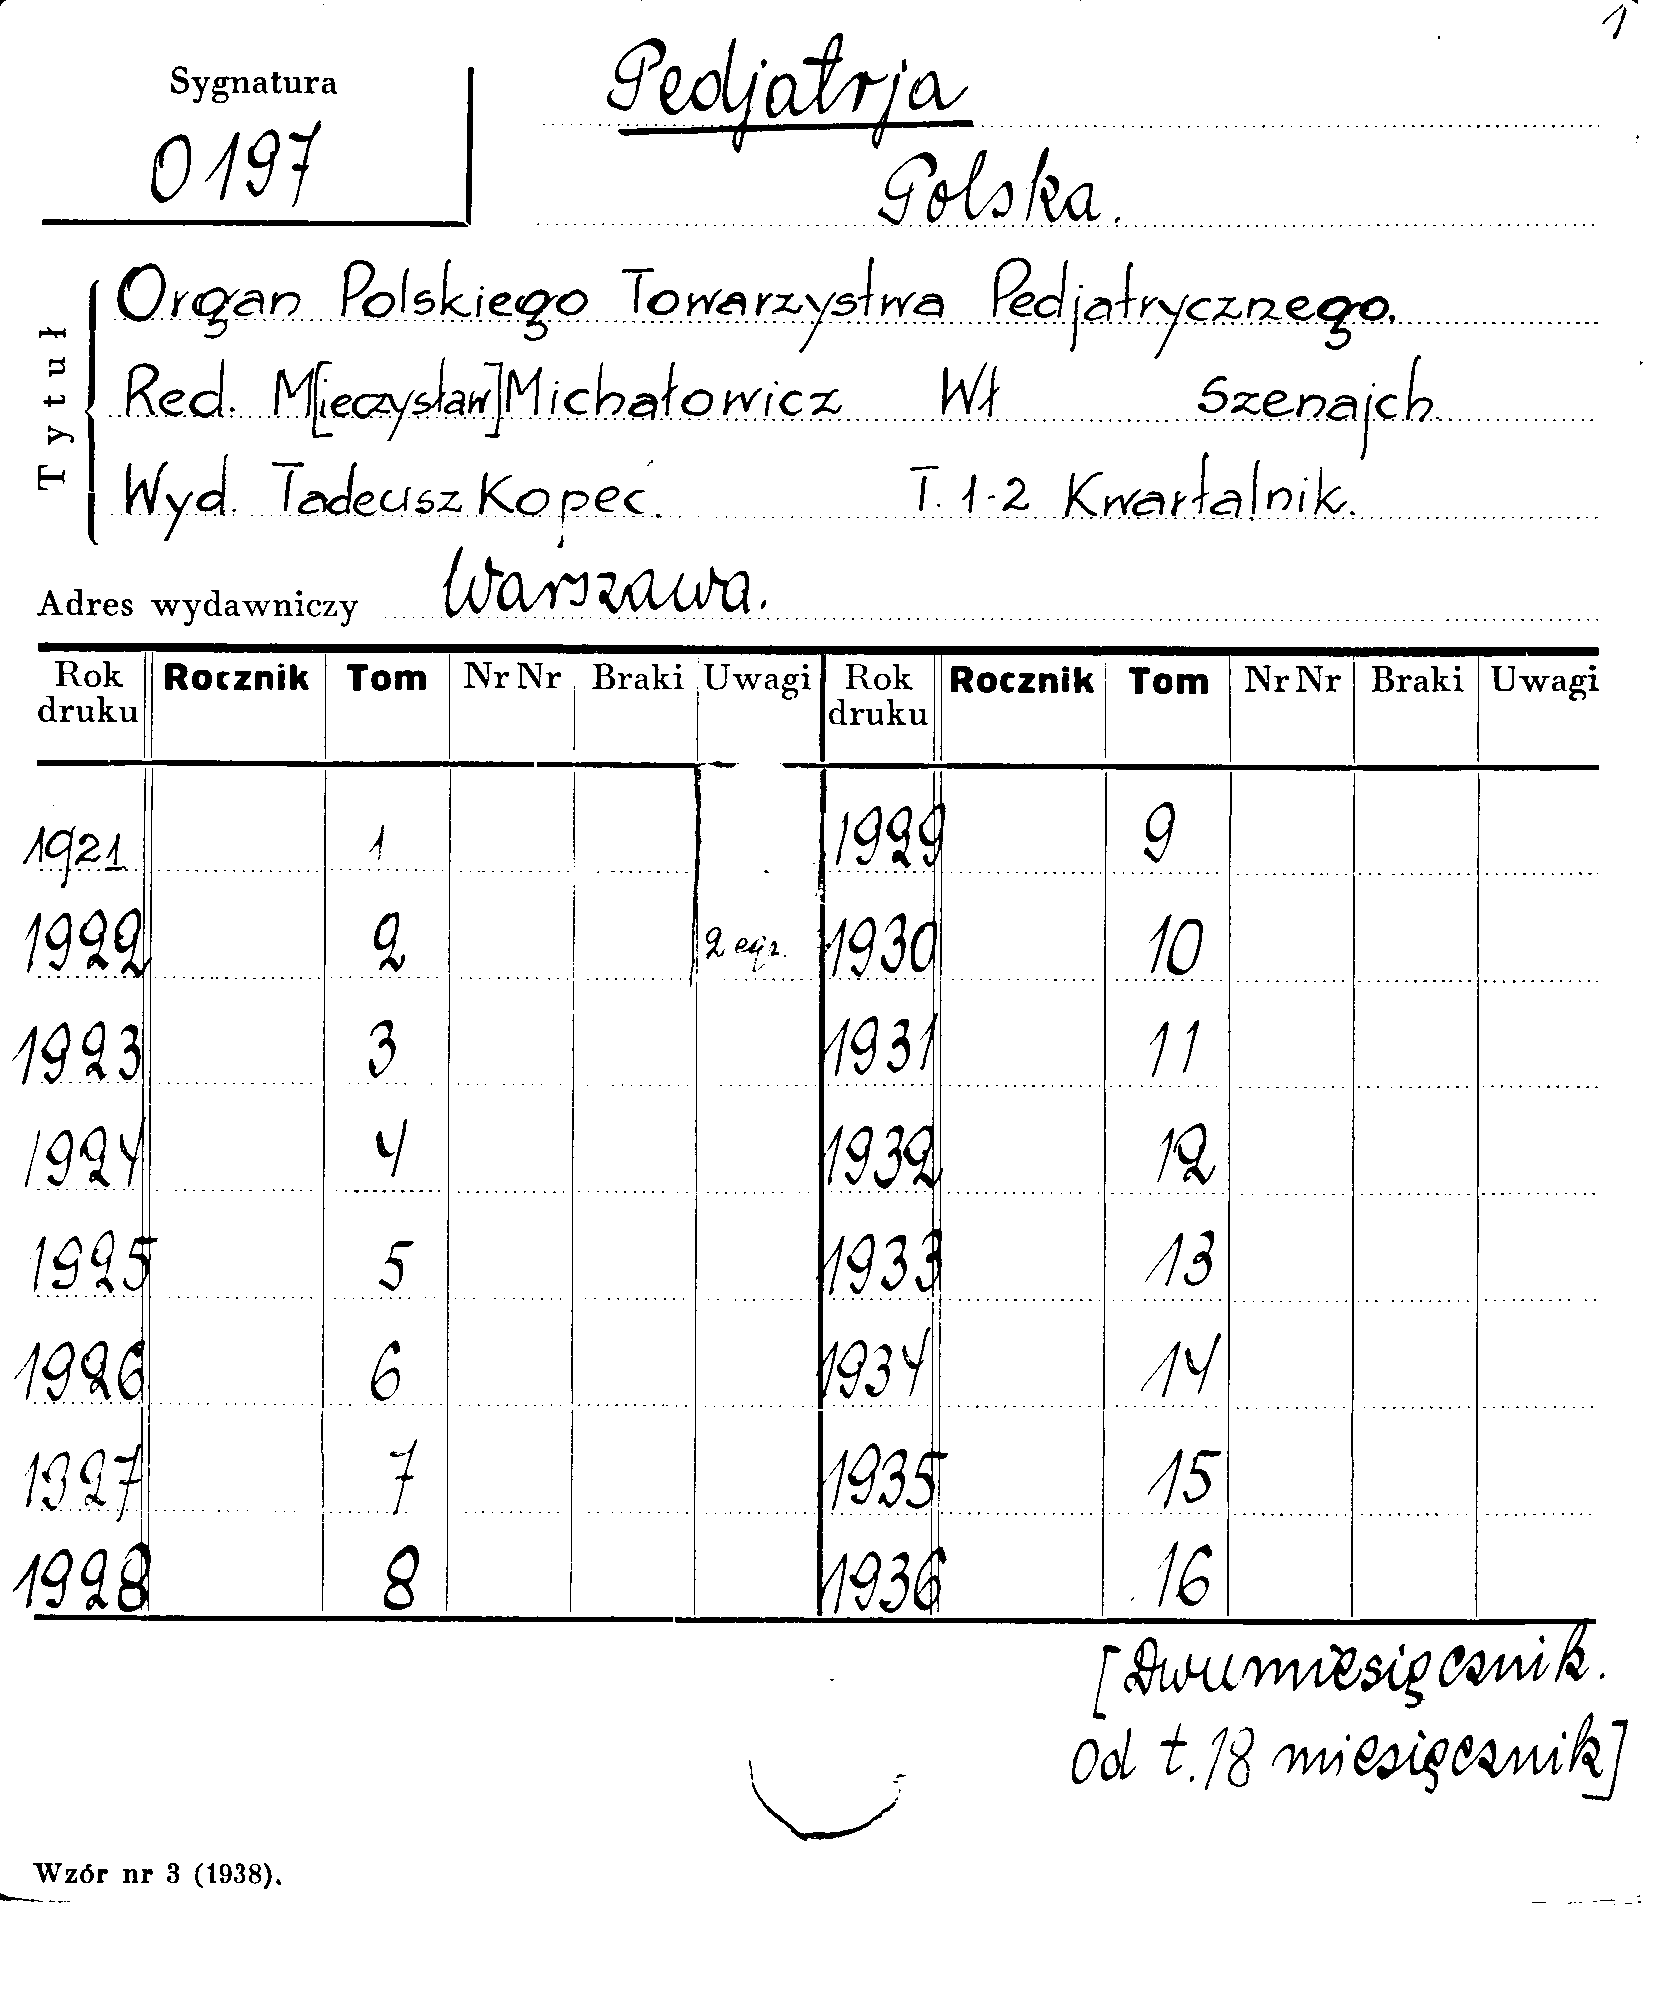 1
Sygnatura
0197
Pedjatrja
Polska.
Tytuł
Organ Polskiego Towarzystwa Pedjatrycznego.
Red. M[ieczysław] Michałowicz Wł Szenajch
Wyd. Tadeusz Kopeć. T. 1-2 Kwartalnik.
Adres wydawniczy Warszawa.
Rok druku Rocznik Tom Nr Nr Braki Uwagi Rok druku Rocznik Tom Nr Nr Braki Uwagi
1921 1 1929 9
1922 2 2 egz. 1930 10
1923 3 1931 11
1924 4 1932 12
1925 5 1933 13
1926 6 1934 14
1927 7 1935 15
1928 8 1936 16
[Dwumiesięcznik.
od t. 18 miesięcznik]
Wzór nr 3 (1938).